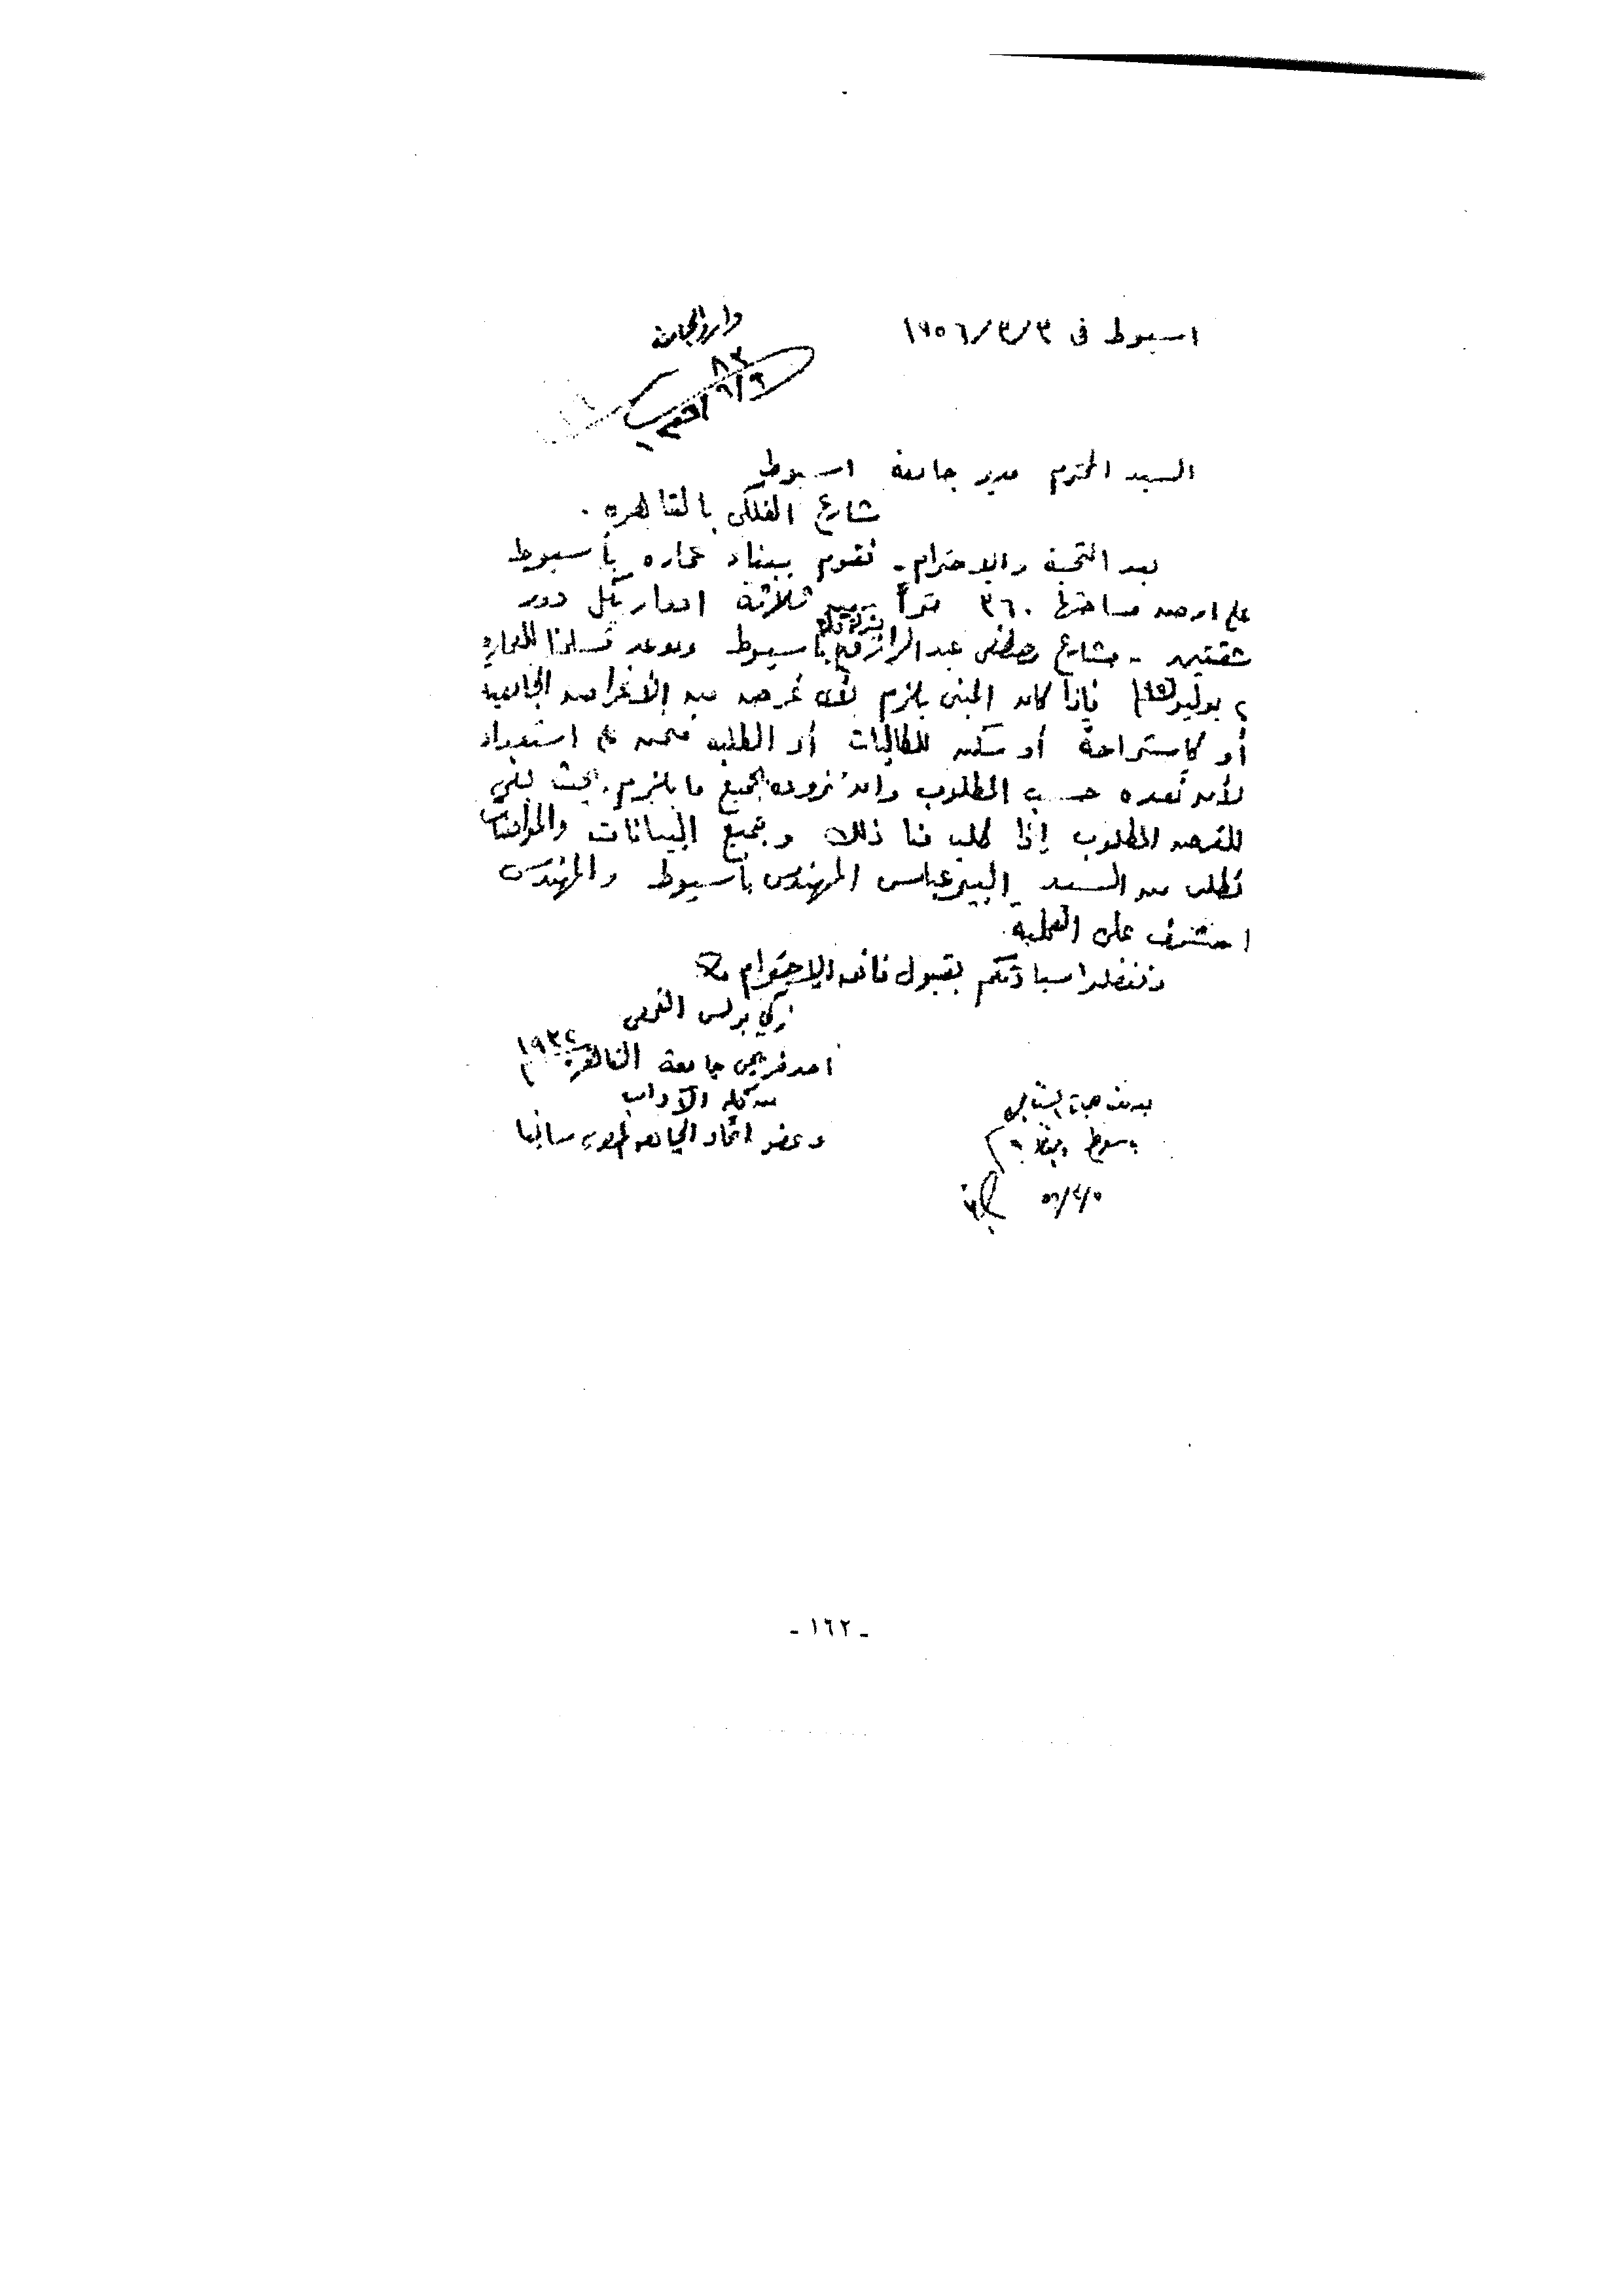 اسيوط فى ٣/٣/١٩٥٦
وارد الجامعة
٨٣
السيد المحترم مدير جامعة اسيوط
شارع الفلكى بالقاهره .
بعد التحية والاحترام - نقوم ببناء عماره بأسيوط
على ارض مساحتها ٣٦٠ متراً من ثلاثة ادوار بكل دور
شقتين - بشارع مصطفى عبد الرازق بأسيوط وموعد تسلمنا للعماره
يوليو ١٩٥٦ فإذا كان المبنى يلزم لأى غرض من الأغراض الجامعية
أو كاستراحة أو سكن للطالبات أو الطلبه فنحن على استعداد
لأن نعده حسب المطلوب وان نزوده بجميع ما يلزم بحيث يفى
للغرض المطلوب إذا طلب منا ذلك وجميع البيانات والمواصفات
تطلب من السيد البير عباس المهندس بأسيوط والمهندس
المشرف على العملية
وتفضلوا سيادتكم بقبول فائق الاحترام
زكى بولس القمص
احد خريجى جامعة القاهرة ١٩٣٤
من كلية الآداب
وعضو اتحاد الجامعة المصرية سابقا
٥/٤/٥٦
- ١٦٢ -